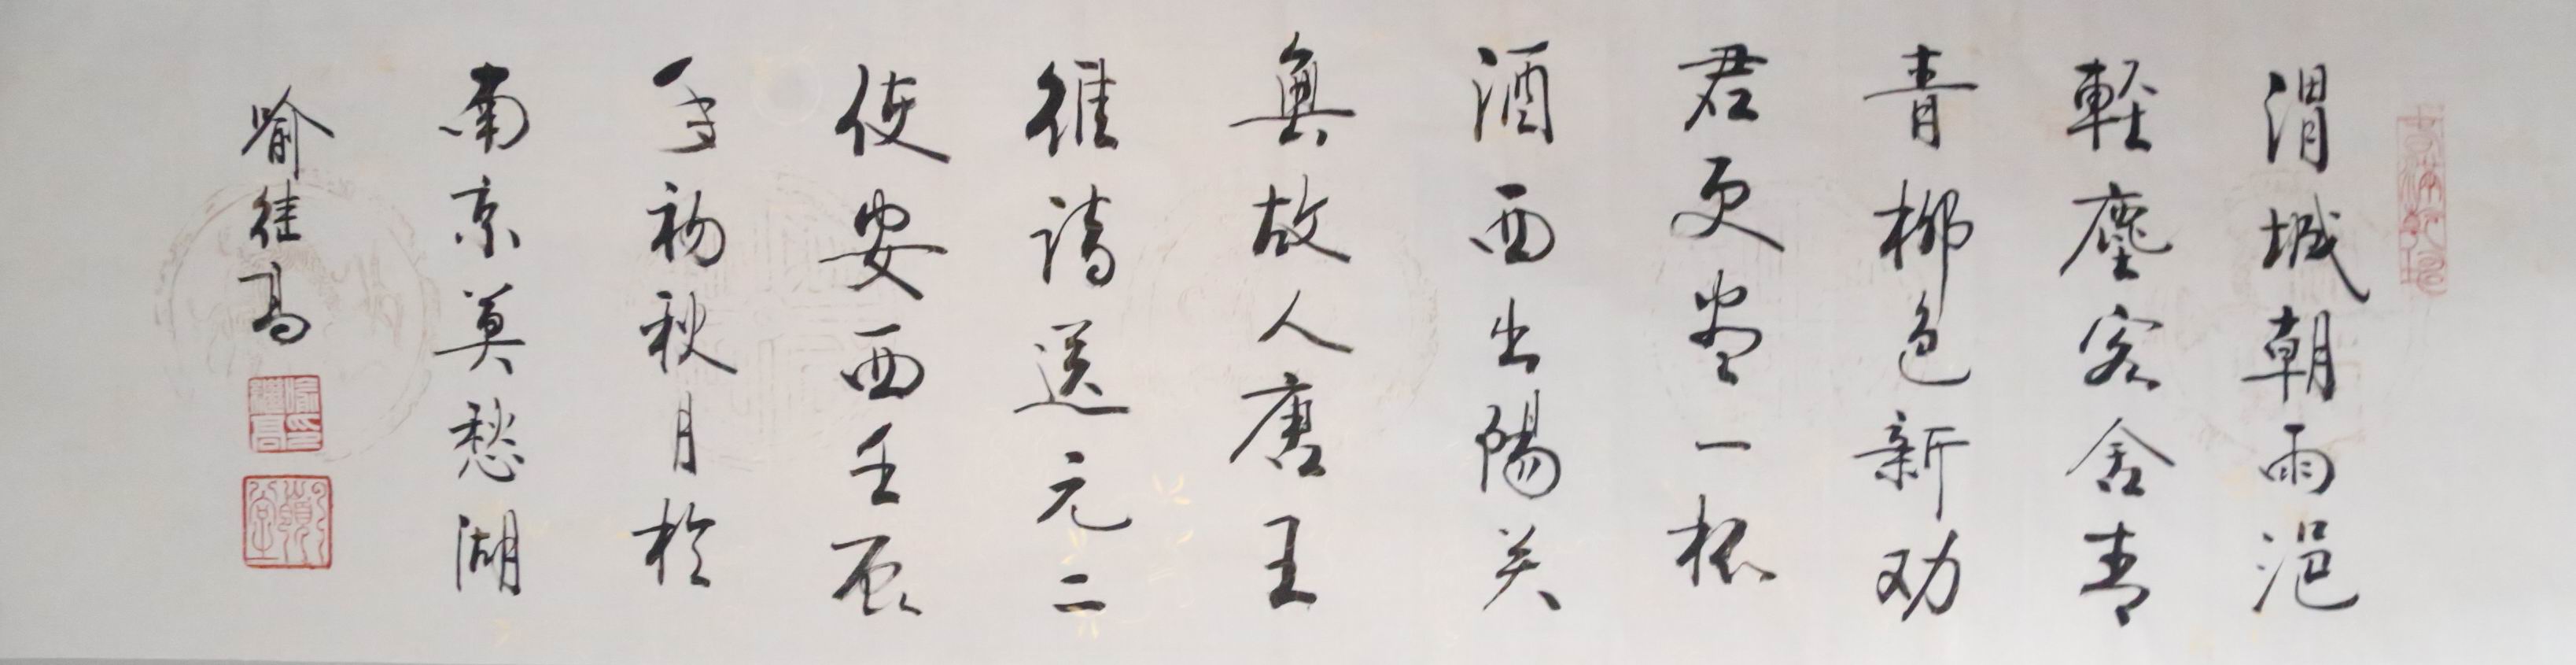 渭城朝雨浥
輕塵客舍青
青柳色新劝
君更盡一杯
酒西出陽关
無故人唐王
維詩送元二
使安西壬辰
年初秋月於
南京莫愁湖
喻继高
喻印繼高